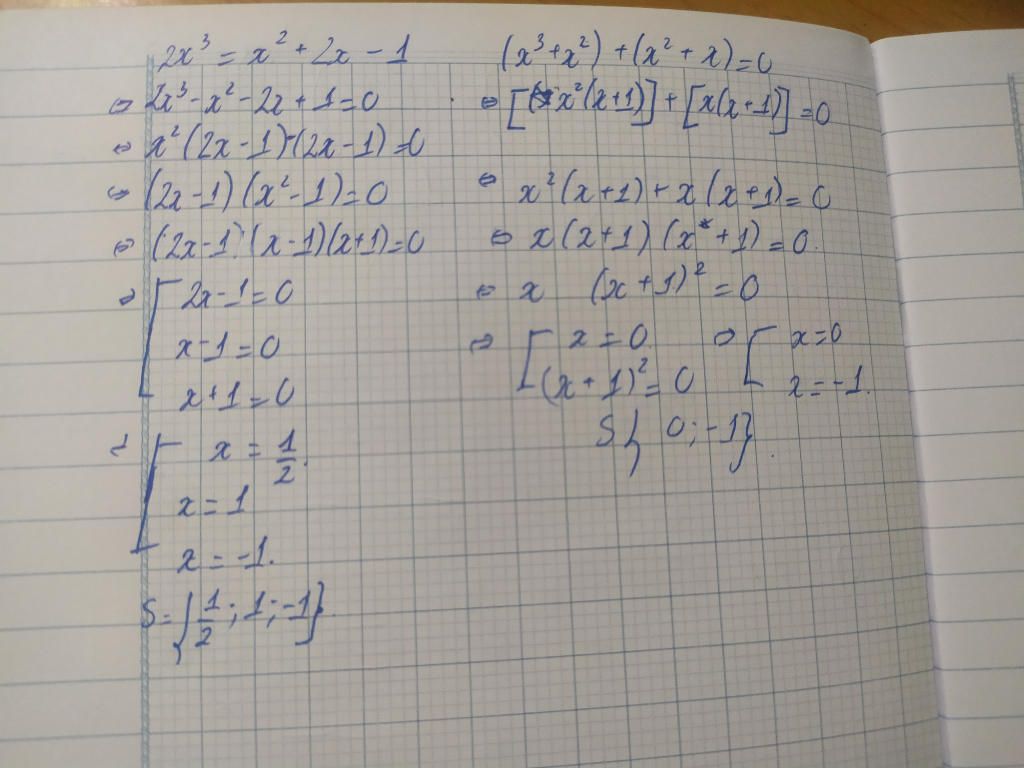 2x³ = x² + 2x - 1
⇔ 2x³ - x² - 2x + 1 = 0
⇔ x²(2x - 1) - (2x - 1) = 0
⇔ (2x - 1)(x² - 1) = 0
⇔ (2x - 1)(x - 1)(x + 1) = 0
⇔ [ 2x - 1 = 0
x - 1 = 0
x + 1 = 0
[ x = 1/2.
x = 1
x = -1.
S = {1/2; 1; -1}.
(x³ + x²) + (x² + x) = 0
⇔ [x²(x + 1)] + [x(x + 1)] = 0
⇔ x²(x + 1) + x(x + 1) = 0
⇔ x(x + 1)(x + 1) = 0.
⇔ x (x + 1)² = 0
⇔ [ x = 0 ⇔ [ x = 0
(x + 1)² = 0 x = -1.
S{ 0; -1}.